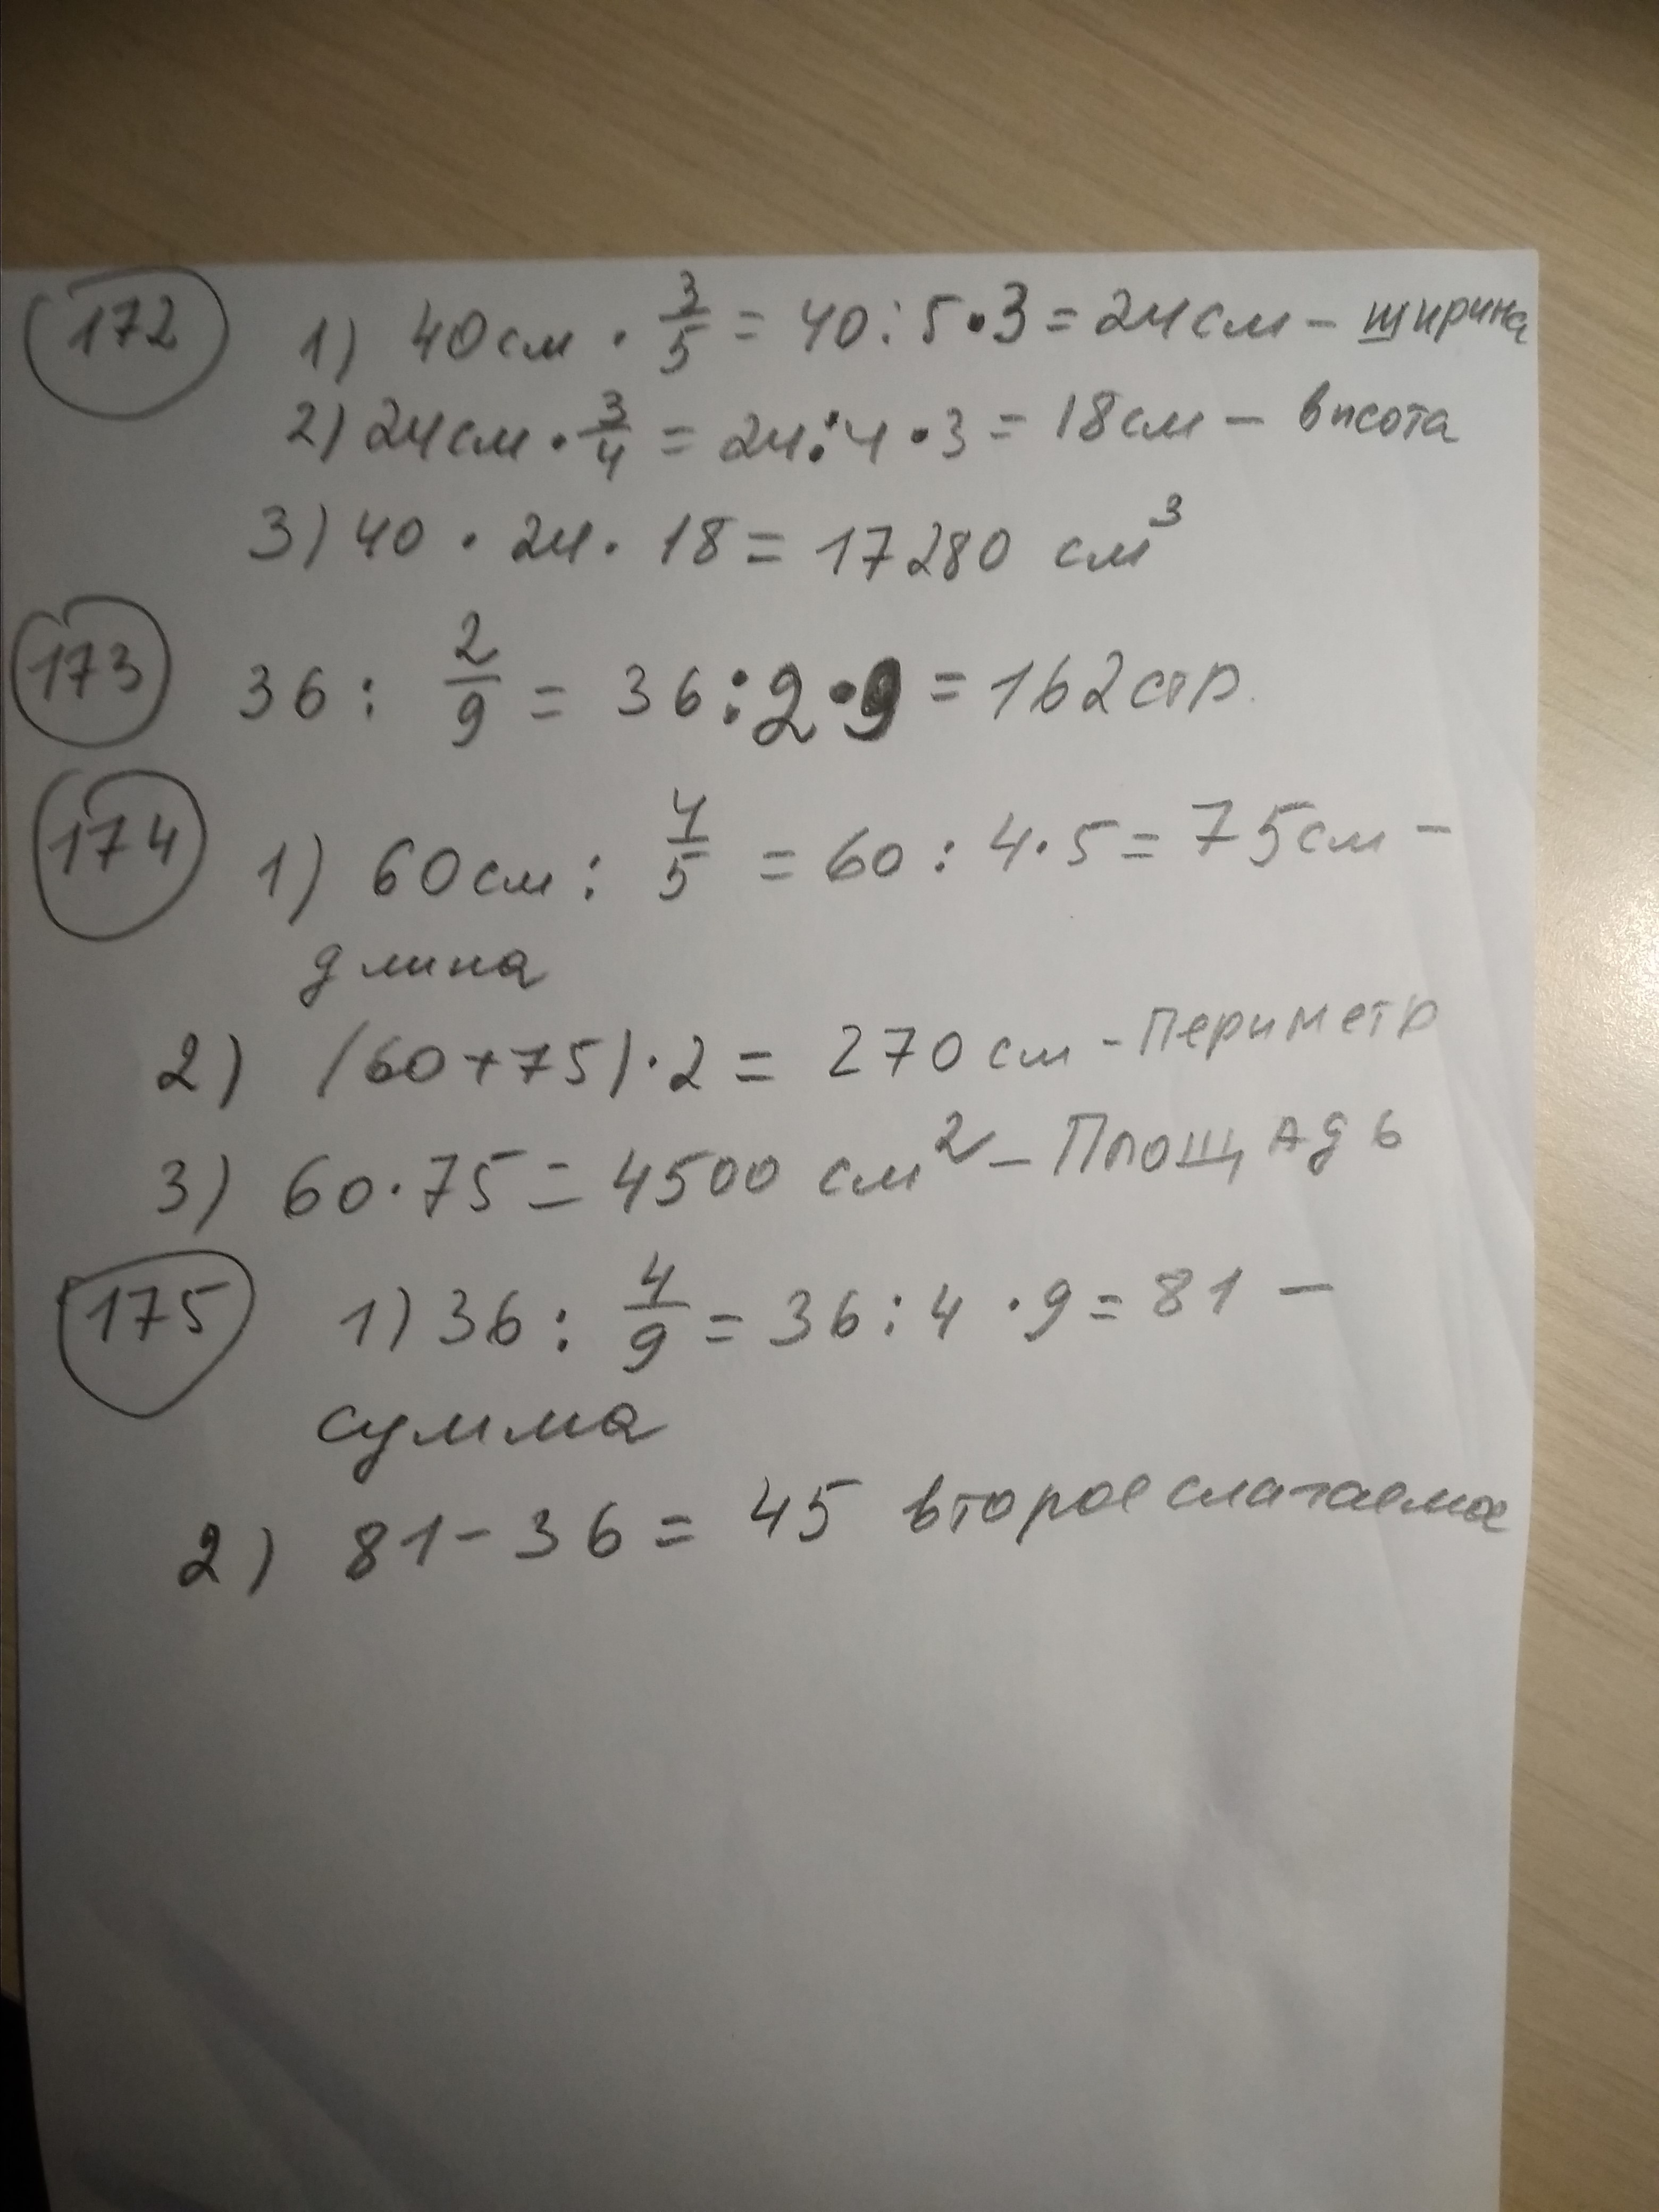 172 1) 40 см · 3/5 = 40 : 5 · 3 = 24 см – ширина
2) 24 см · 3/4 = 24 : 4 · 3 = 18 см – высота
3) 40 · 24 · 18 = 17280 см³
173 36 : 2/9 = 36 : 2 · 9 = 162 стр.
174 1) 60 см : 4/5 = 60 : 4 · 5 = 75 см –
длина
2) (60+75) · 2 = 270 см – Периметр
3) 60 · 75 = 4500 см² – Площадь
175 1) 36 : 4/9 = 36 : 4 · 9 = 81 –
сумма
2) 81 – 36 = 45 второе слагаемое